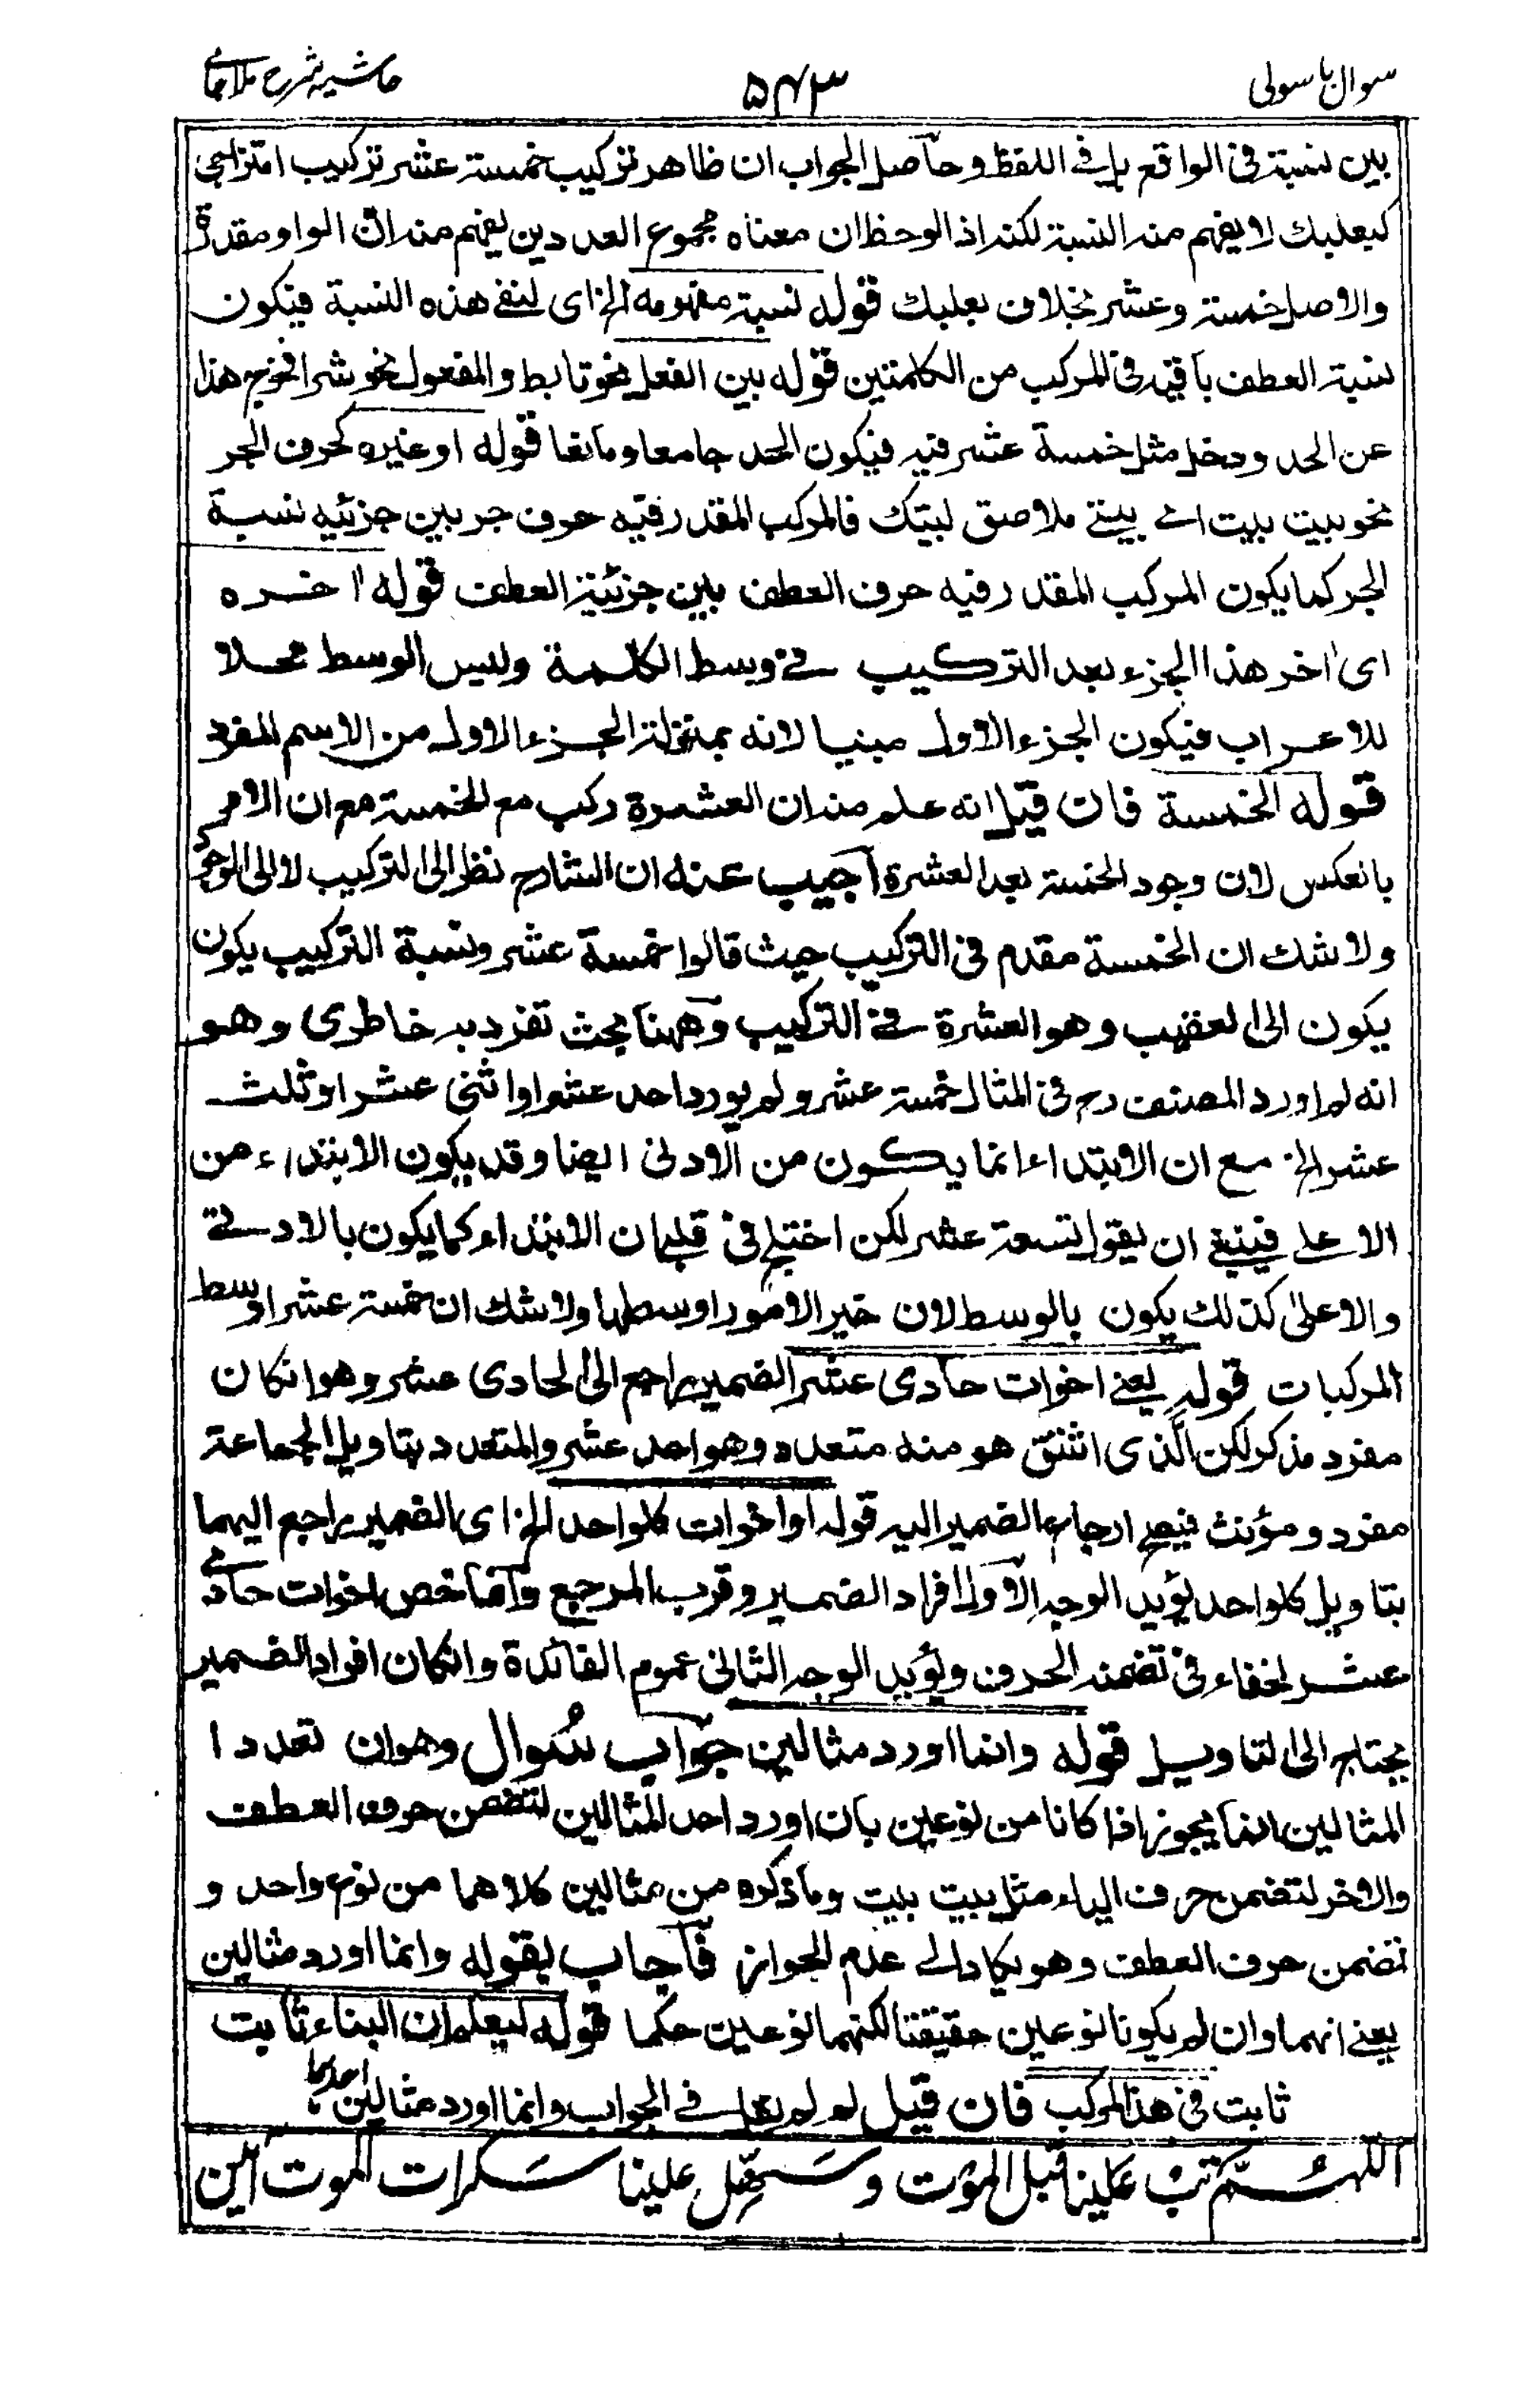 سوال باسولی
۵۴۳
حاشیه شرح ملا جامی
بين نسبة فى الواقع بل فى اللفظ وحاصل الجواب ان ظاهر تركيب خمسة عشر تركيب امتزاجى
كبعلبك لا يفهم منه النسبة لكنه اذا لوحظ ان معناه مجموع العددين يفهم منه ان الواو مقدرة
والاصل خمسة وعشر بخلاف بعلبك قوله نسبة مفهومة الخ اى لنفى هذه النسبة فيكون
نسبة العطف باقية فى المركب من الكلمتين قوله بين الفعل نحو تابط والمفعول نحو شرا فخرج هذا
عن الحد ودخل مثل خمسة عشر فيه فيكون الحد جامعا ومانعا قوله او غيره كحرف الجر
نحو بيت بيت اے بيتے ملاصق لبيتك فالمركب المقدر فيه حرف جر بين جزئيه نسبة
الجر كما يكون المركب المقدر فيه حرف العطف بين جزئية العطف قوله اخره
اى اخر هذا الجزء بعد التركيب فے وسط الكلمة وليس الوسط محلا
للاعراب فيكون الجزء الاول مبنيا لانه بمنزلة الجزء الاول من الاسم المفرد
قوله الخمسة فان قيل انه علم منه ان العشرة ركب مع الخمسة مع ان الامر
بالعكس لان وجود الخمسة بعد العشرة اجيب عنه ان الشارح نظر الى التركيب لا الى الوجود
ولا شك ان الخمسة مقدم فى التركيب حيث قالوا خمسة عشر ونسبة التركيب يكون
يكون الى العقيب وهو العشرة فے التركيب وههنا بحث تفرد به خاطرى وهو
انه لم اورد المصنف رح فى المثال خمسة عشر ولم يورد احد عشر او اثنى عشر او ثلث
عشر الخ مع ان الابتداء انما يكون من الادنى ايضا وقد يكون الابتداء من
الاعلے فينبغے ان يقول تسعة عشر لكن اختلج فى قلبى ان الابتداء كما يكون بالادنے
والاعلى كذلك يكون بالوسط لان خير الامور اوسطها ولا شك ان خمسة عشر اوسط
المركبات قوله يعنے اخوات حادى عشر الضمير راجع الى الحادى عشر وهو انكان
مفرد مذكر لكن الّذى اشتق هو منه متعدد وهو احد عشر والمتعدد بتاويل الجماعة
مفرد ومؤنث فيصح ارجاع الضمير اليه قوله او اخوات كلواحد الخ اى الضمير راجع اليهما
بتاويل كلواحد يؤيد الوجه الاول افراد الضمير وقرب المرجع وانما خص اخوات حادے
عشر لخفاء فى تضمنه الحرف ويؤيد الوجه الثانى عموم الفائدة وانكان افراد الضمير
يحتاج الى التاويل قوله وانما اورد مثالين جواب سُوال وهو ان تعدد ا
المثالين انما يجوز اذا كانا من نوعين بان اورد احد المثالين لتضمن حرف العطف
والاخر لتضمن حرف الباء مثل بيت بيت وما ذكره من مثالين كلاهما من نوع واحد و
تضمن حرف العطف وهو يكاد الے عدم الجواز فاجاب بقوله وانما اورد مثالين
يعنے انهما وان لم يكونا نوعين حقيقتا لكنهما نوعين حكما قوله ليعلم ان البناء ثابت
ثابت فى هذا المركب فان قيل لم لم يقل فے الجواب وانما اورد مثالين احدهما
اللّهُمَّ تُبْ عَلَيْنَا قَبْلَ الْمَوْتِ وَسَهِّلْ علينا سَكرات الموت آمين